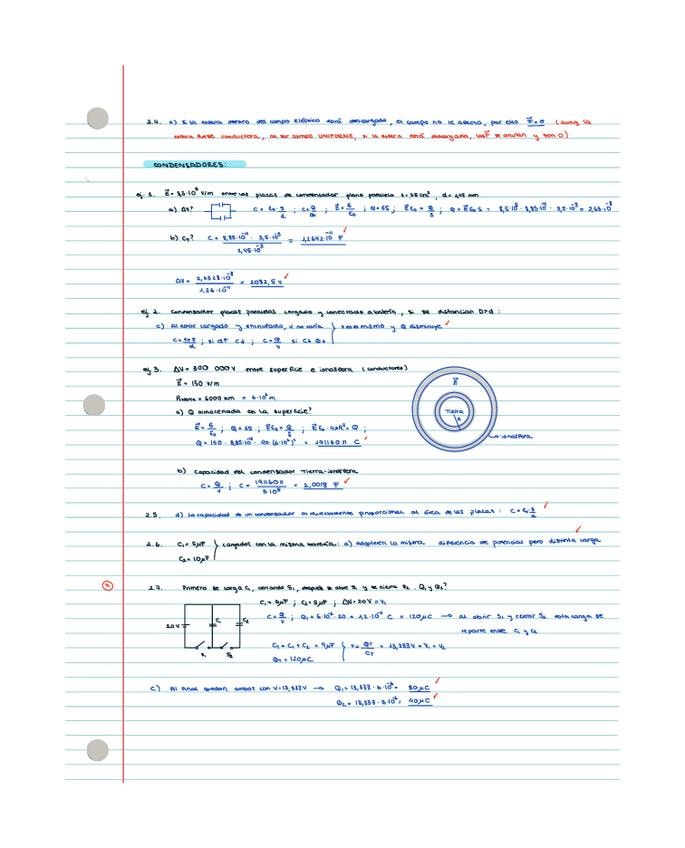 2.4. c) Si la esfera dentro del campo eléctrico está descargada, el campo no le afecta, por ello F=0 (aunq la
esfera fuese conductora, al ser campo UNIFORME, si la esfera está descargada, las F se anulan y son 0)
CONDENSADORES:
ej 1. E = 8,5·10⁵ V/m entre las placas de condensador plano paralelo
a) ΔV? C = ε₀·S/d ; Q = σS ; Eε₀ = Q/S ; Q = Eε₀·S =
b) C? C = 8,85·10⁻¹² · 3,5·10⁻³ / 2,45·10⁻³ = 1,2642·10⁻¹¹ F
ΔV = = 2082,5 V
ej 2. Condensador placas paralelas cargado y conectado a batería, si se distancian D>d :
c) Al estar cargado y enchufado, V no varía y Q disminuye
; si d↑ C↓ ; C = Q/V si C↓ Q↓
ej 3. ΔV = 300 000 V entre superficie e ionosfera (conductores)
E = 150 V/m
R tierra = 6000 km = 6·10⁶ m
a) Q almacenada en la superficie?
E = σ/ε₀ ; Q = σS ; Eε₀ = Q/S ; Eε₀·4πR² = Q ;
Q = 150 · 8,85·10⁻¹² · 4π · (6·10⁶)² = 191160π C
E
Tierra
R
ionosfera
b) Capacidad del condensador Tierra-ionosfera
C = Q/V ; C = 191160π / 3·10⁵ = 2,0018 F
2.5. d) La capacidad de un condensador es directamente proporcional al área de las placas : C = ε₀ S/d
2.6. C₁ = 5μF cargados con la misma batería : a) adquieren la misma diferencia de potencial pero distinta carga
C₂ = 10μF
2.7. Primero se carga C₁, cerrando S₁, después se abre S₁ y se cierra S₂. Q₁ y Q₂?
C₁ = 6μF ; C₂ = 3μF ; ΔV = 20 V = V₁
C = Q/V ; Q₁ = 6·10⁻⁶ · 20 = 1,2·10⁻⁴ C = 120μC → al abrir S₁ y cerrar S₂ esta carga se
reparte entre C₁ y C₂
20V C₁ C₂
S₁ S₂
C_T = C₁ + C₂ = 9μF V = Q_T/C_T = 13,333 V = V₁ = V₂
Q_T = 120μC
c) Al final quedan ambos con V = 13,333V → Q₁ = 13,333 · 6·10⁻⁶ = 80μC
Q₂ = 13,333 · 3·10⁻⁶ = 40μC